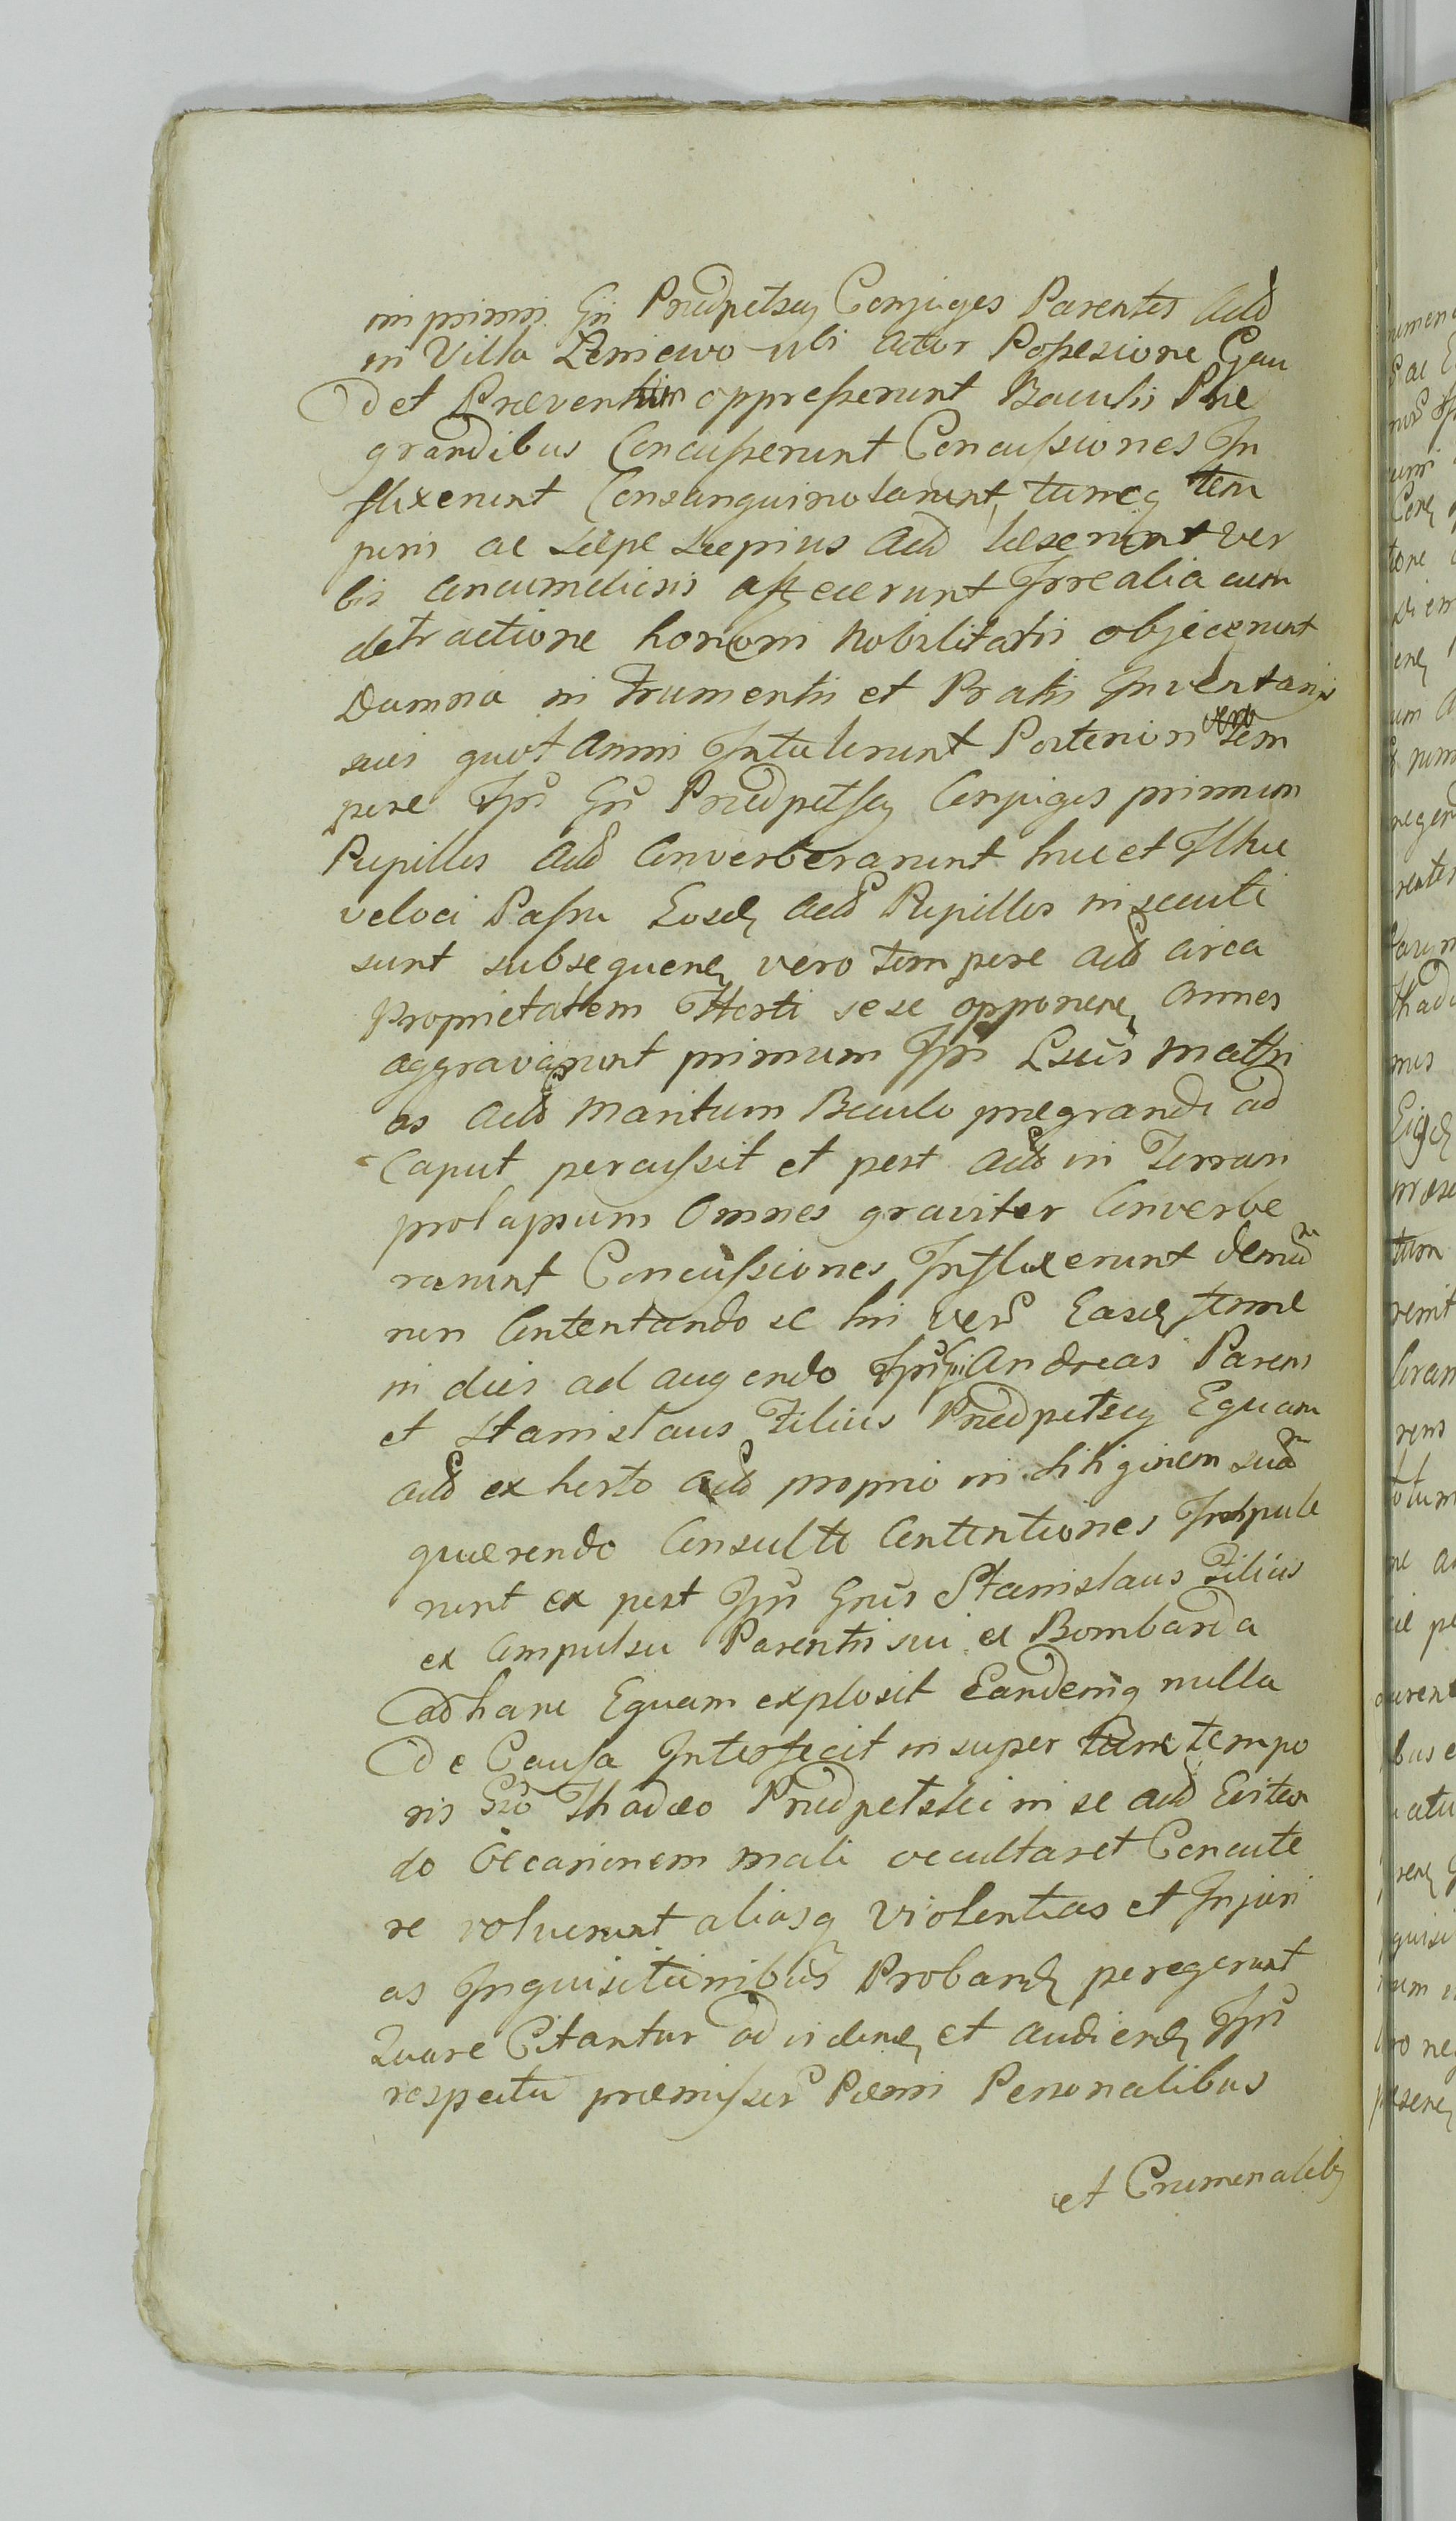 imprimis Gñi Przedpetscy Conjuges Parentes Actõ
in Villa Leniewo ubi Actor Possesione Gau
det Præventim oppresserunt Baculis Præ
grandibus Concusserunt Concussiones In
flixerunt Consanguinolarunt, tumq tem
poris ac sæpe sæpius Actõ læserunt ver
bis Concumeliosis affecerunt Irrealia cum
detractione honoris Nobilitatis objecerunt
Damna in Frumentis et Pratis Inventarijs
suis quot Annis Intulerunt Posteriori vero tem
pore Ipsi Gñi Przedpetscy Conjuges primum
Pupillos Actõ Converberarunt huc et Illuc
veloci Passu Eosdẽ Actõ Pupillos insecuti
sunt subsequenẽ vero tempore Actõ circa
Proprietatem Horti sese opponenẽ Omnes
aggravarunt primum Ipsi
as Actõ Maritum Baculo prægrandi ad
Caput percussit et post Actõ in Terram
prolapsum Omnes graviter Converbe
rarunt Concussiones Inflixerunt demũ
non Contentando se his verõ Easdẽ
in dies adaugendo Ipsi Gñi Andreas Parens
et Stanislaus Filius Przedpetscy Equam
Actõ ex horto Actõ proprio in litiginem suã
quærendo Consulto Contentiones Impule
runt ex post Ipsi Gñus Stanislaus Filius
ex Compulsu Parentis sui ex Bombarda
ad hanc Equam explosit Eandemq nulla
de Causa Interfecit insuper tunc tempo
ris Gño Thadæo Przedpetski ni se Actõ Evitan
do Occasionem mali occultaret Concute
re voluerunt aliasq violentias et Injuri
as Inquisitionibus Probandẽ peregerunt
Quare Citantur ad videndẽ et audiendẽ Ipsi
respectu præmissorũ Pœnis Personalibus
et Crumenalibq